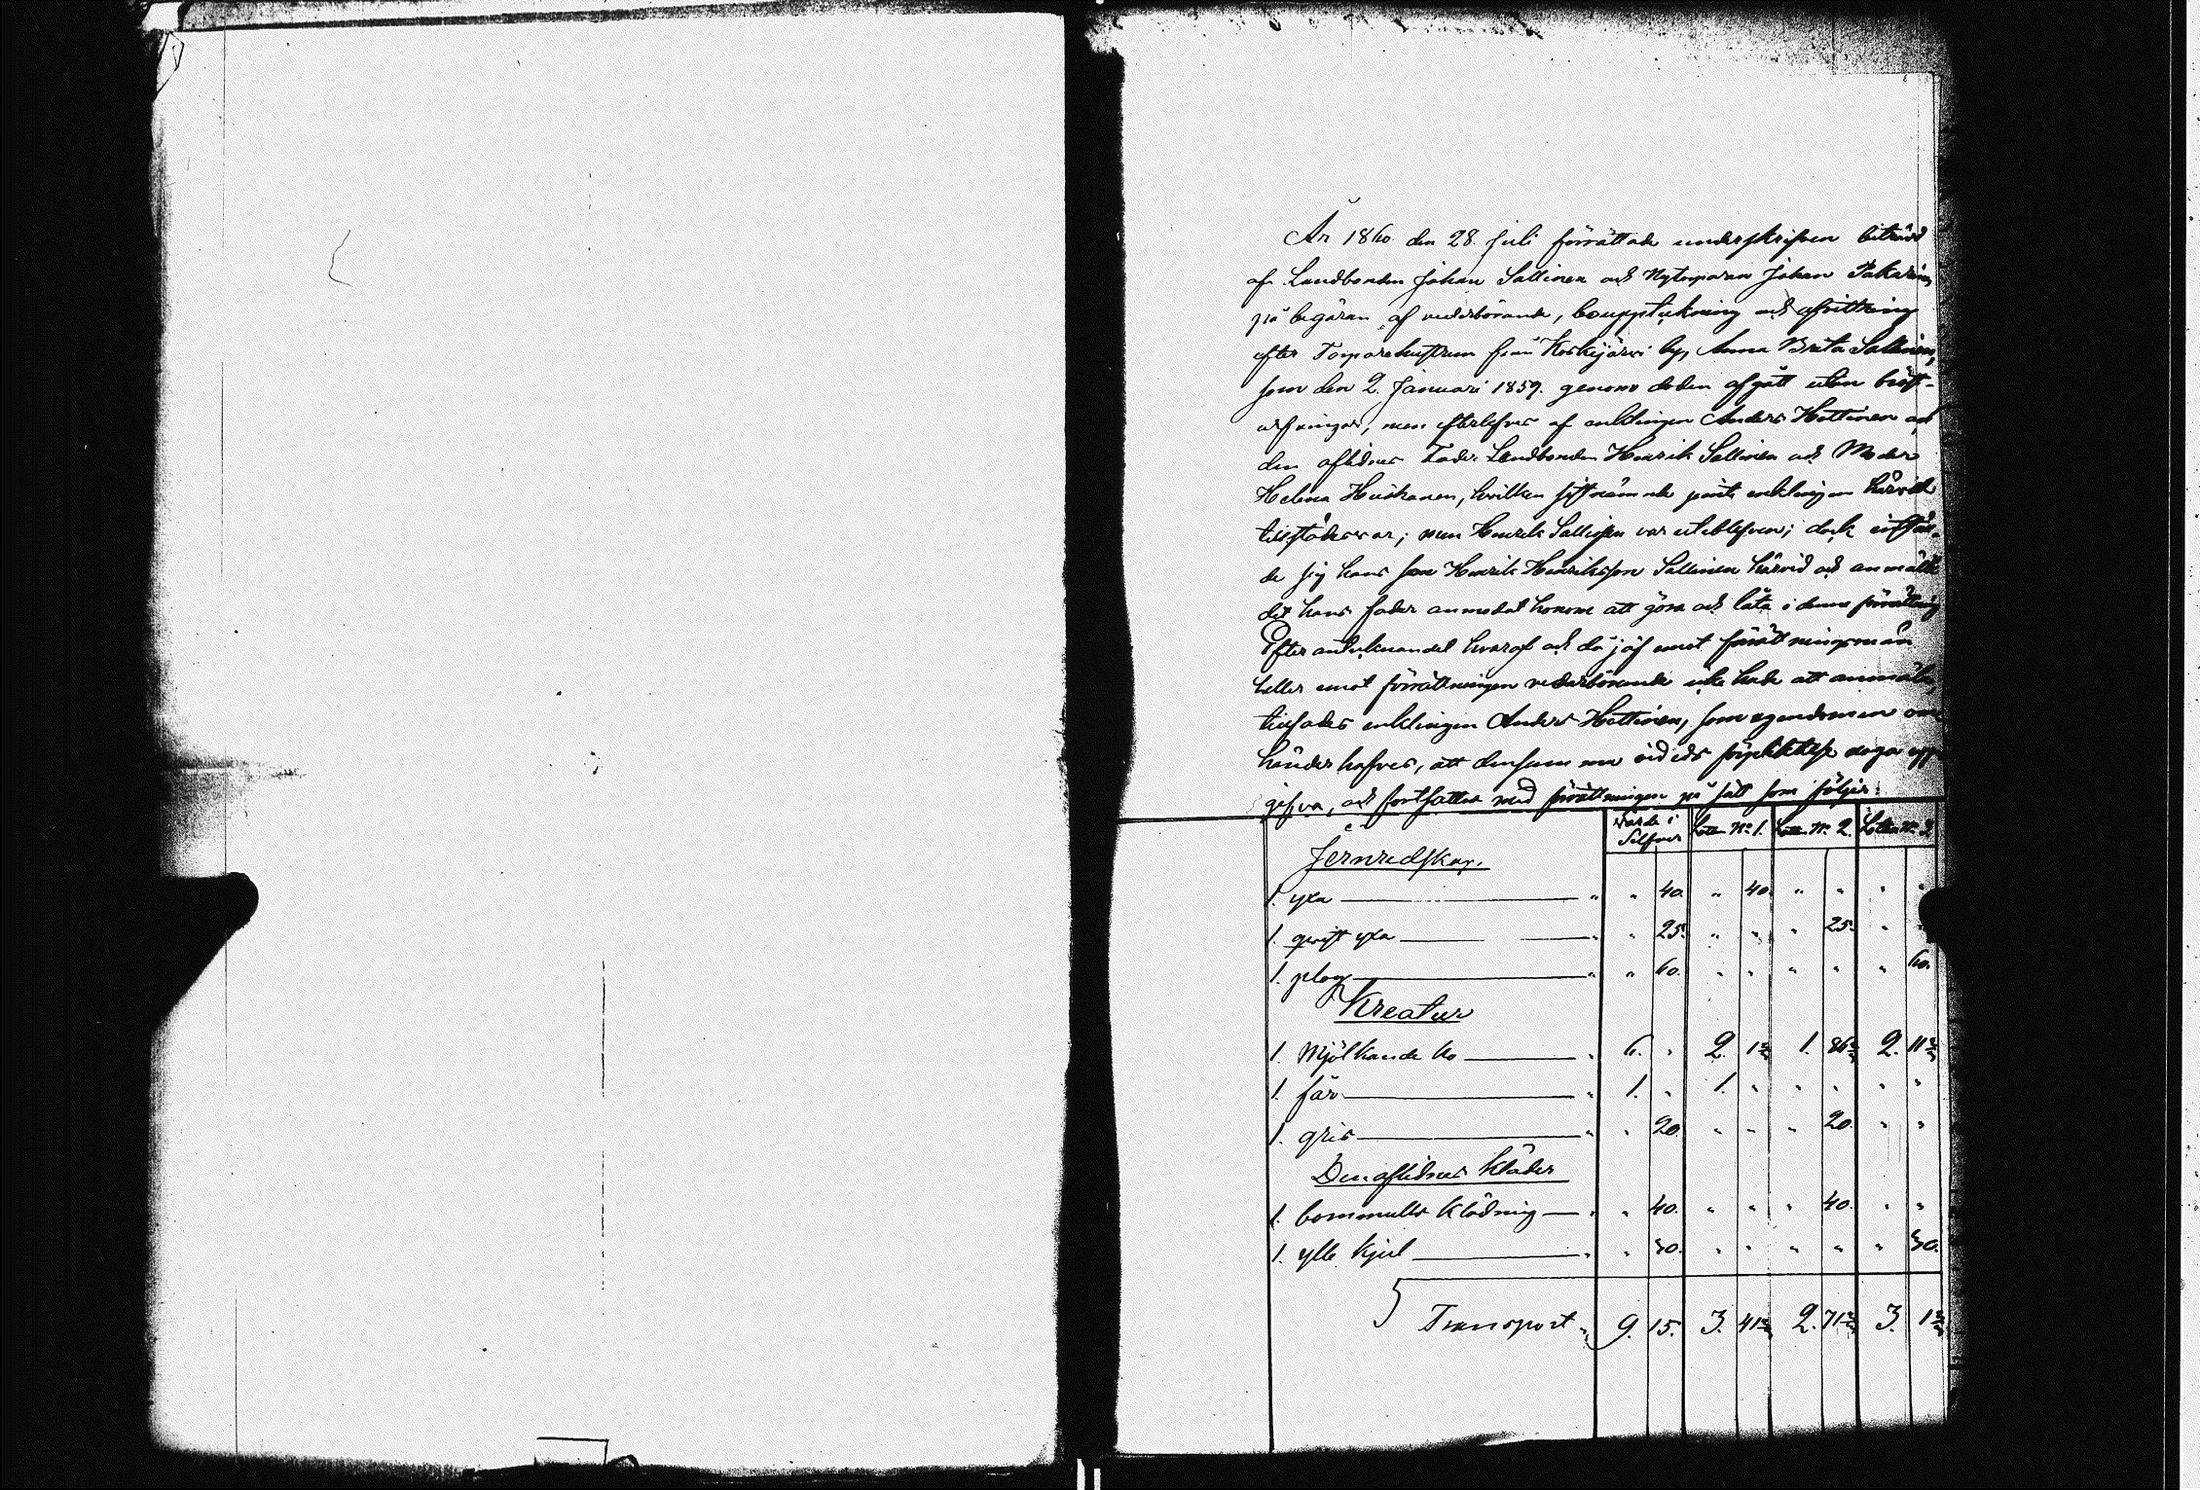 År 1860 den 28 Juli förrättade underskrifven biträdd
af Landbonden Johan Sallinen och Nytorparen Johan Pakarinen
på begäran af vederbörande, bouppteckning och afvittring
efter Torparehustrun från Koskijärvi by, Anna Brita Sallinen,
som den 2. Januari 1859. genom döden afgått utan bröst-
arfvingar, men efterlefves af enklingen Anders Hottinen och
den aflidnes Fader Landbonden Henrik Sallinen och Moder
Helena Huiskonen, hvilken sistnämnde jemte enklingen härvid
tillstädes var; men Henrik Sallinen var utebliven; dock instäl-
de sig hans son Henrik Henriksson Sallinen härvid och anmälte
det hans fader anmodat honom att göra och låta i denna förrättning
Efter antecknandet hvaraf och då jäf emot förrättningsman
heller emot förrättningen vederbörande icke hade att anmäla,
tillsades enklingen Anders Hottinen, som egendomen om
händer hafver, att densamma vid eds förpliktelse noga upp
gifva, och fortsattes med förrättningen på sätt som följer:
Värde i Silfver Lotten No 1. Lotten No 2. Lotten No 3.
Jernredskap.
1. yxa " " 40. " 40. " " " "
1. qvist yxa " " 25. " " " 25. " "
1. plog " " 60. " " " " " 60.
Kreatur
1. Mjölkande ko " 6. " 2. 1 2/3 1. 86 2/3 2. 11 2/3
1. får " 1. " 1. " " " " "
1. gris " " 20. " " " 20. " "
Den aflidnes kläder
1. bommulls klädning " " 40. " " " 40. " "
1. ylle kjol " " 30. " " " " " 30.
Transport " 9. 15. 3. 41 2/3 2. 71 2/3 3. 1 2/3